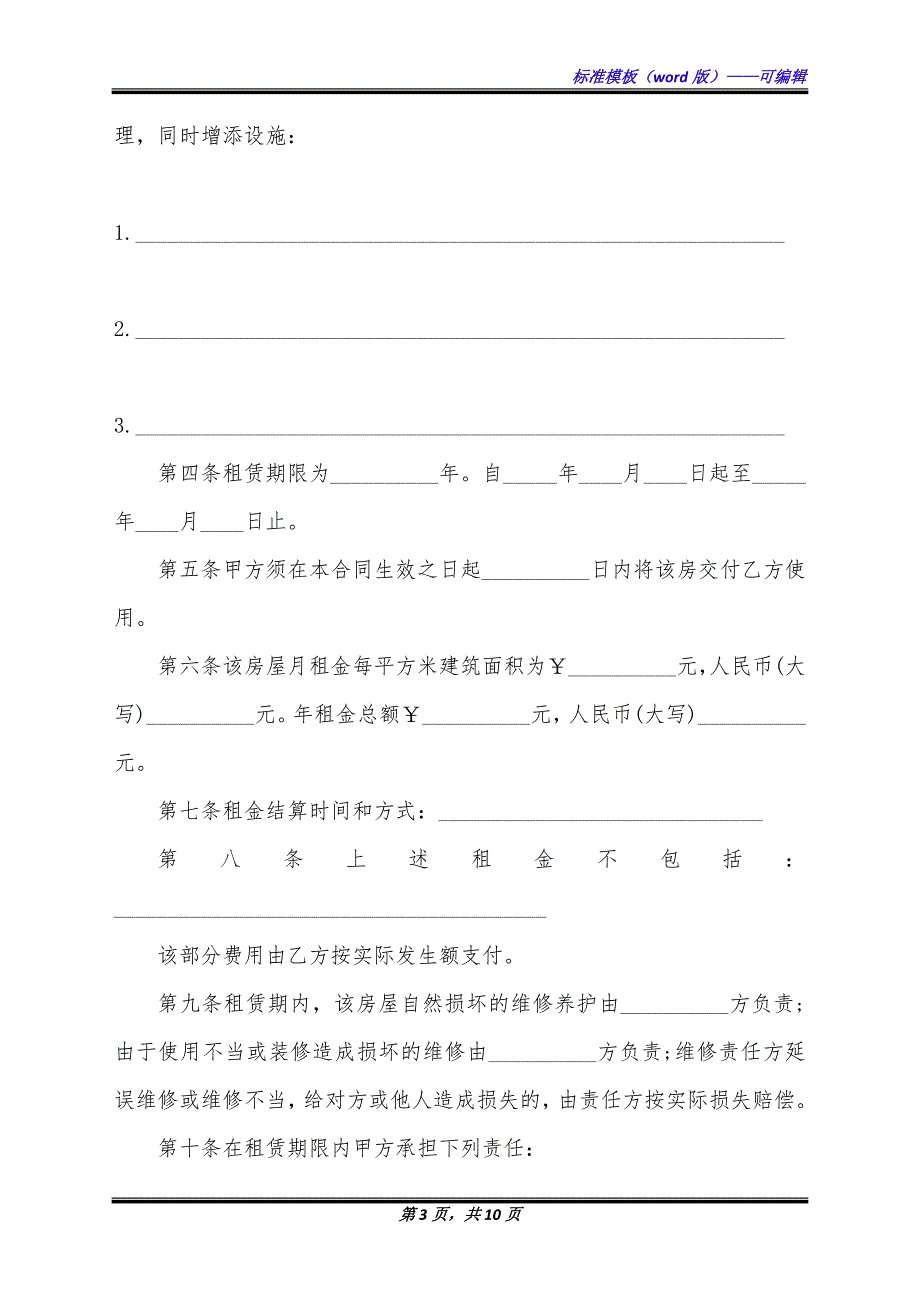 标准模板（word 版）——可编辑
理，同时增添设施：
1.____________________________________________________________
2.____________________________________________________________
3.____________________________________________________________
第四条租赁期限为__________年。自_____年____月____日起至_____
年____月____日止。
第五条甲方须在本合同生效之日起__________日内将该房交付乙方使
用。
第六条该房屋月租金每平方米建筑面积为￥__________元，人民币(大
写)__________元。年租金总额￥__________元，人民币(大写)__________
元。
第七条租金结算时间和方式：______________________________
第八条上述租金不包括：
________________________________________
该部分费用由乙方按实际发生额支付。
第九条租赁期内，该房屋自然损坏的维修养护由__________方负责;
由于使用不当或装修造成损坏的维修由__________方负责;维修责任方延
误维修或维修不当，给对方或他人造成损失的，由责任方按实际损失赔偿。
第十条在租赁期限内甲方承担下列责任：
第 3 页，共 10 页